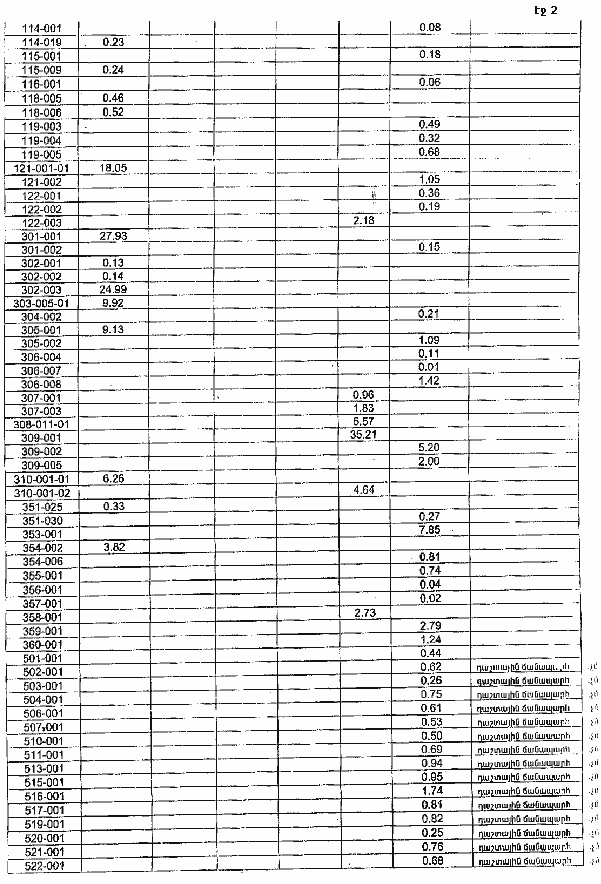 էջ 2
114-001 0.08
114-019 0.23
115-001 0.18
115-009 0.24
116-001 0.06
118-005 0.46
118-006 0.52
119-003 0.49
119-004 0.32
119-005 0.68
121-001-01 18.05
121-002 1.05
122-001 0.36
122-002 0.19
122-003 2.18
301-001 27.93
301-002 0.15
302-001 0.13
302-002 0.14
302-003 24.99
303-005-01 9.92
304-002 0.21
305-001 9.13
305-002 1.09
306-004 0.11
306-007 0.01
306-008 1.42
307-001 0.96
307-003 1.83
308-011-01 6.57
309-001 35.21
309-002 5.20
309-005 2.00
310-001-01 6.26
310-001-02 4.64
351-025 0.33
351-030 0.27
353-001 7.85
354-002 3.82
354-006 0.81
355-001 0.74
356-001 0.04
357-001 0.02
358-001 2.73
359-001 2.79
360-001 1.24
501-001 0.44
502-001 0.62 դաշտային ճանապարհ
503-001 0.26 դաշտային ճանապարհ
504-001 0.75 դաշտային ճանապարհ
506-001 0.61 դաշտային ճանապարհ
507-001 0.53 դաշտային ճանապարհ
510-001 0.50 դաշտային ճանապարհ
511-001 0.69 դաշտային ճանապարհ
513-001 0.94 դաշտային ճանապարհ
515-001 0.95 դաշտային ճանապարհ
516-001 1.74 դաշտային ճանապարհ
517-001 0.81 դաշտային ճանապարհ
519-001 0.82 դաշտային ճանապարհ
520-001 0.25 դաշտային ճանապարհ
521-001 0.76 դաշտային ճանապարհ
522-001 0.68 դաշտային ճանապարհ